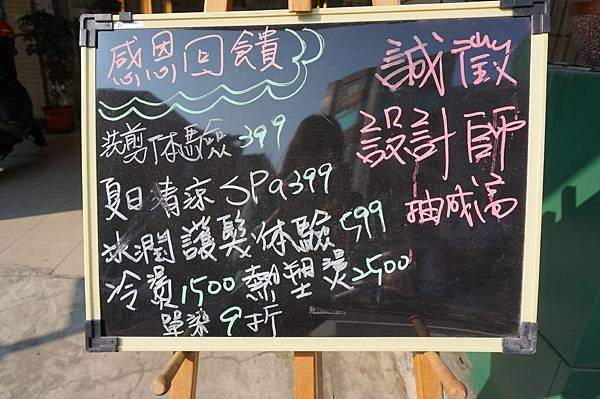 感恩回饋
洗剪体驗399
夏日清涼SPa399
水潤護髮体驗599
冷燙1500熱塑燙2500
單染9折
誠徵
設計師
抽成高